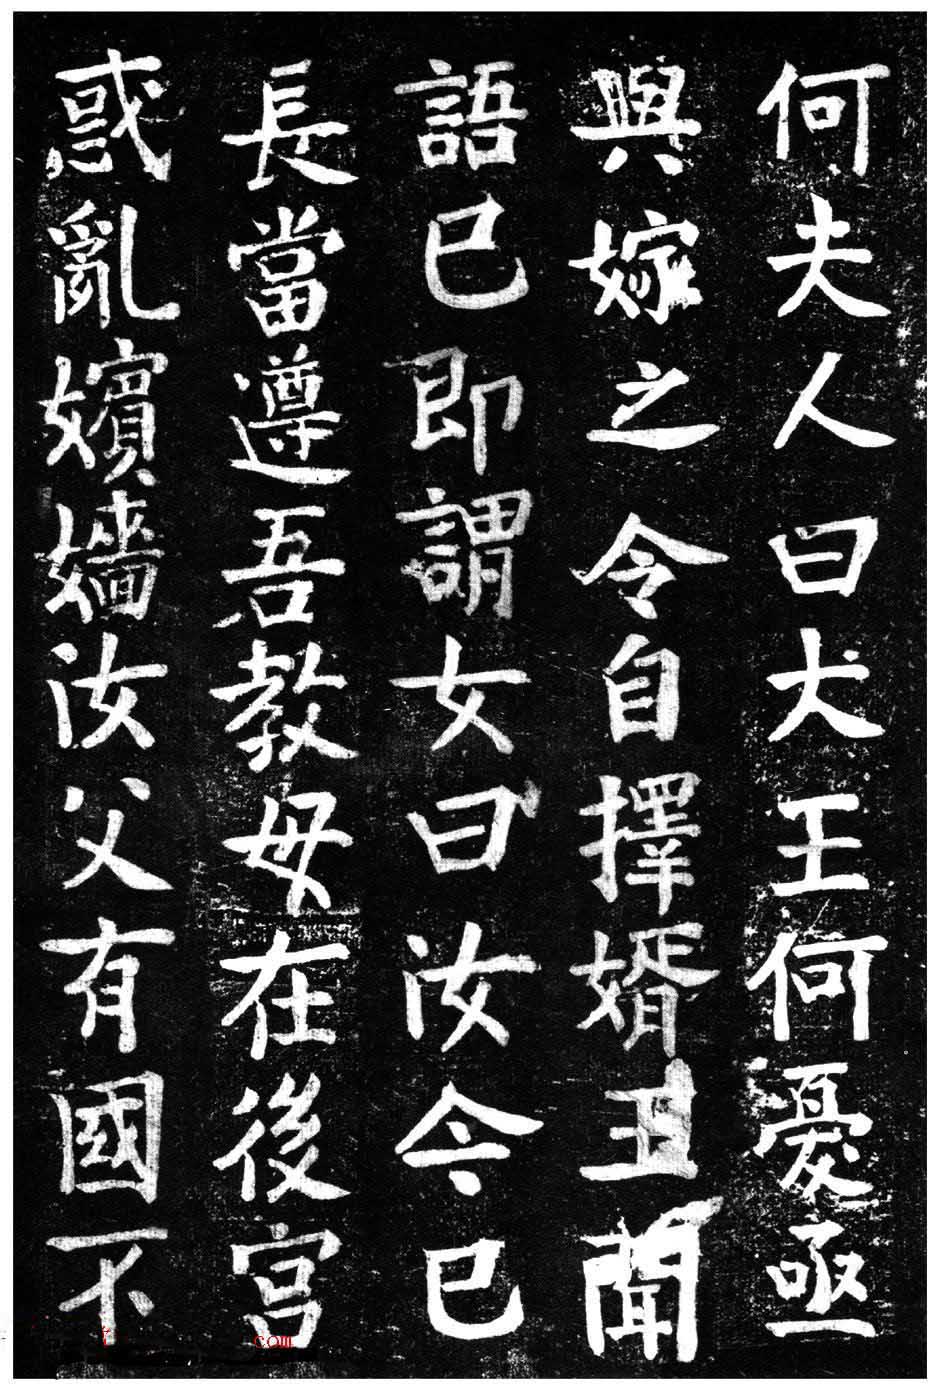 何夫人曰大王何憂亟
與嫁之令自擇婿王聞
語已即謂女曰汝今已
長當遵吾教毋在後宮
惑亂嬪嬙汝父有國不
com